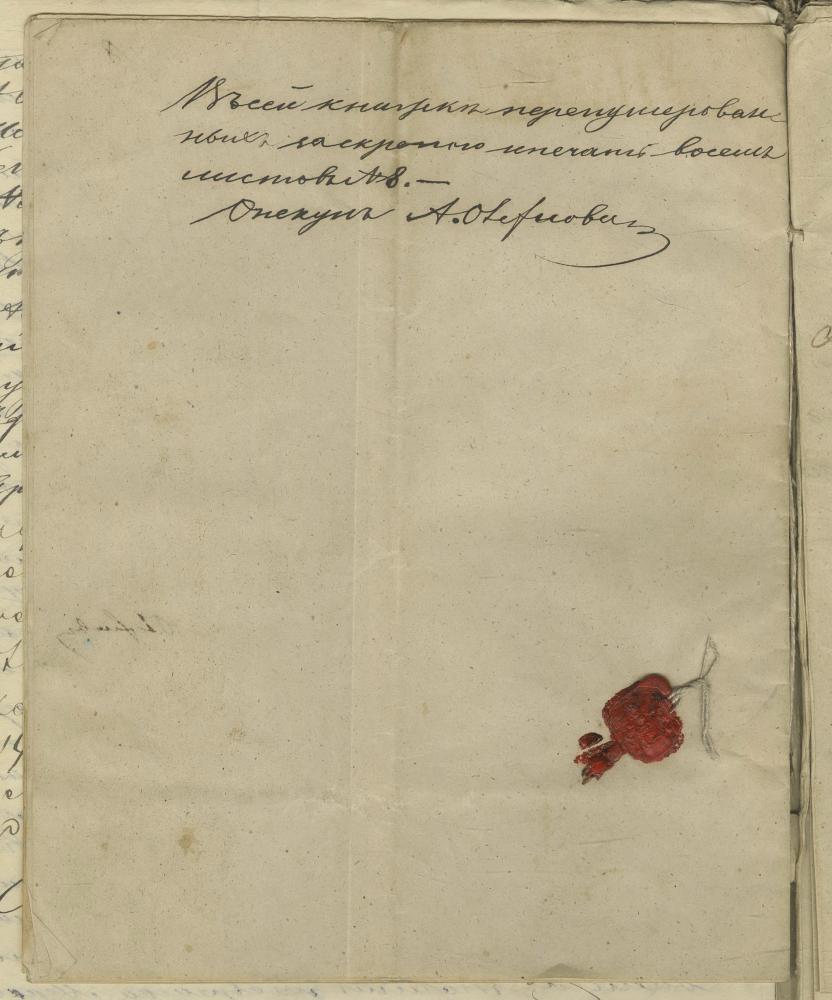 Въ сей книжкѣ перенумерован
ныхъ за скрепою и печатѣ восемь
листовъ № 8. —
Опекунъ А.